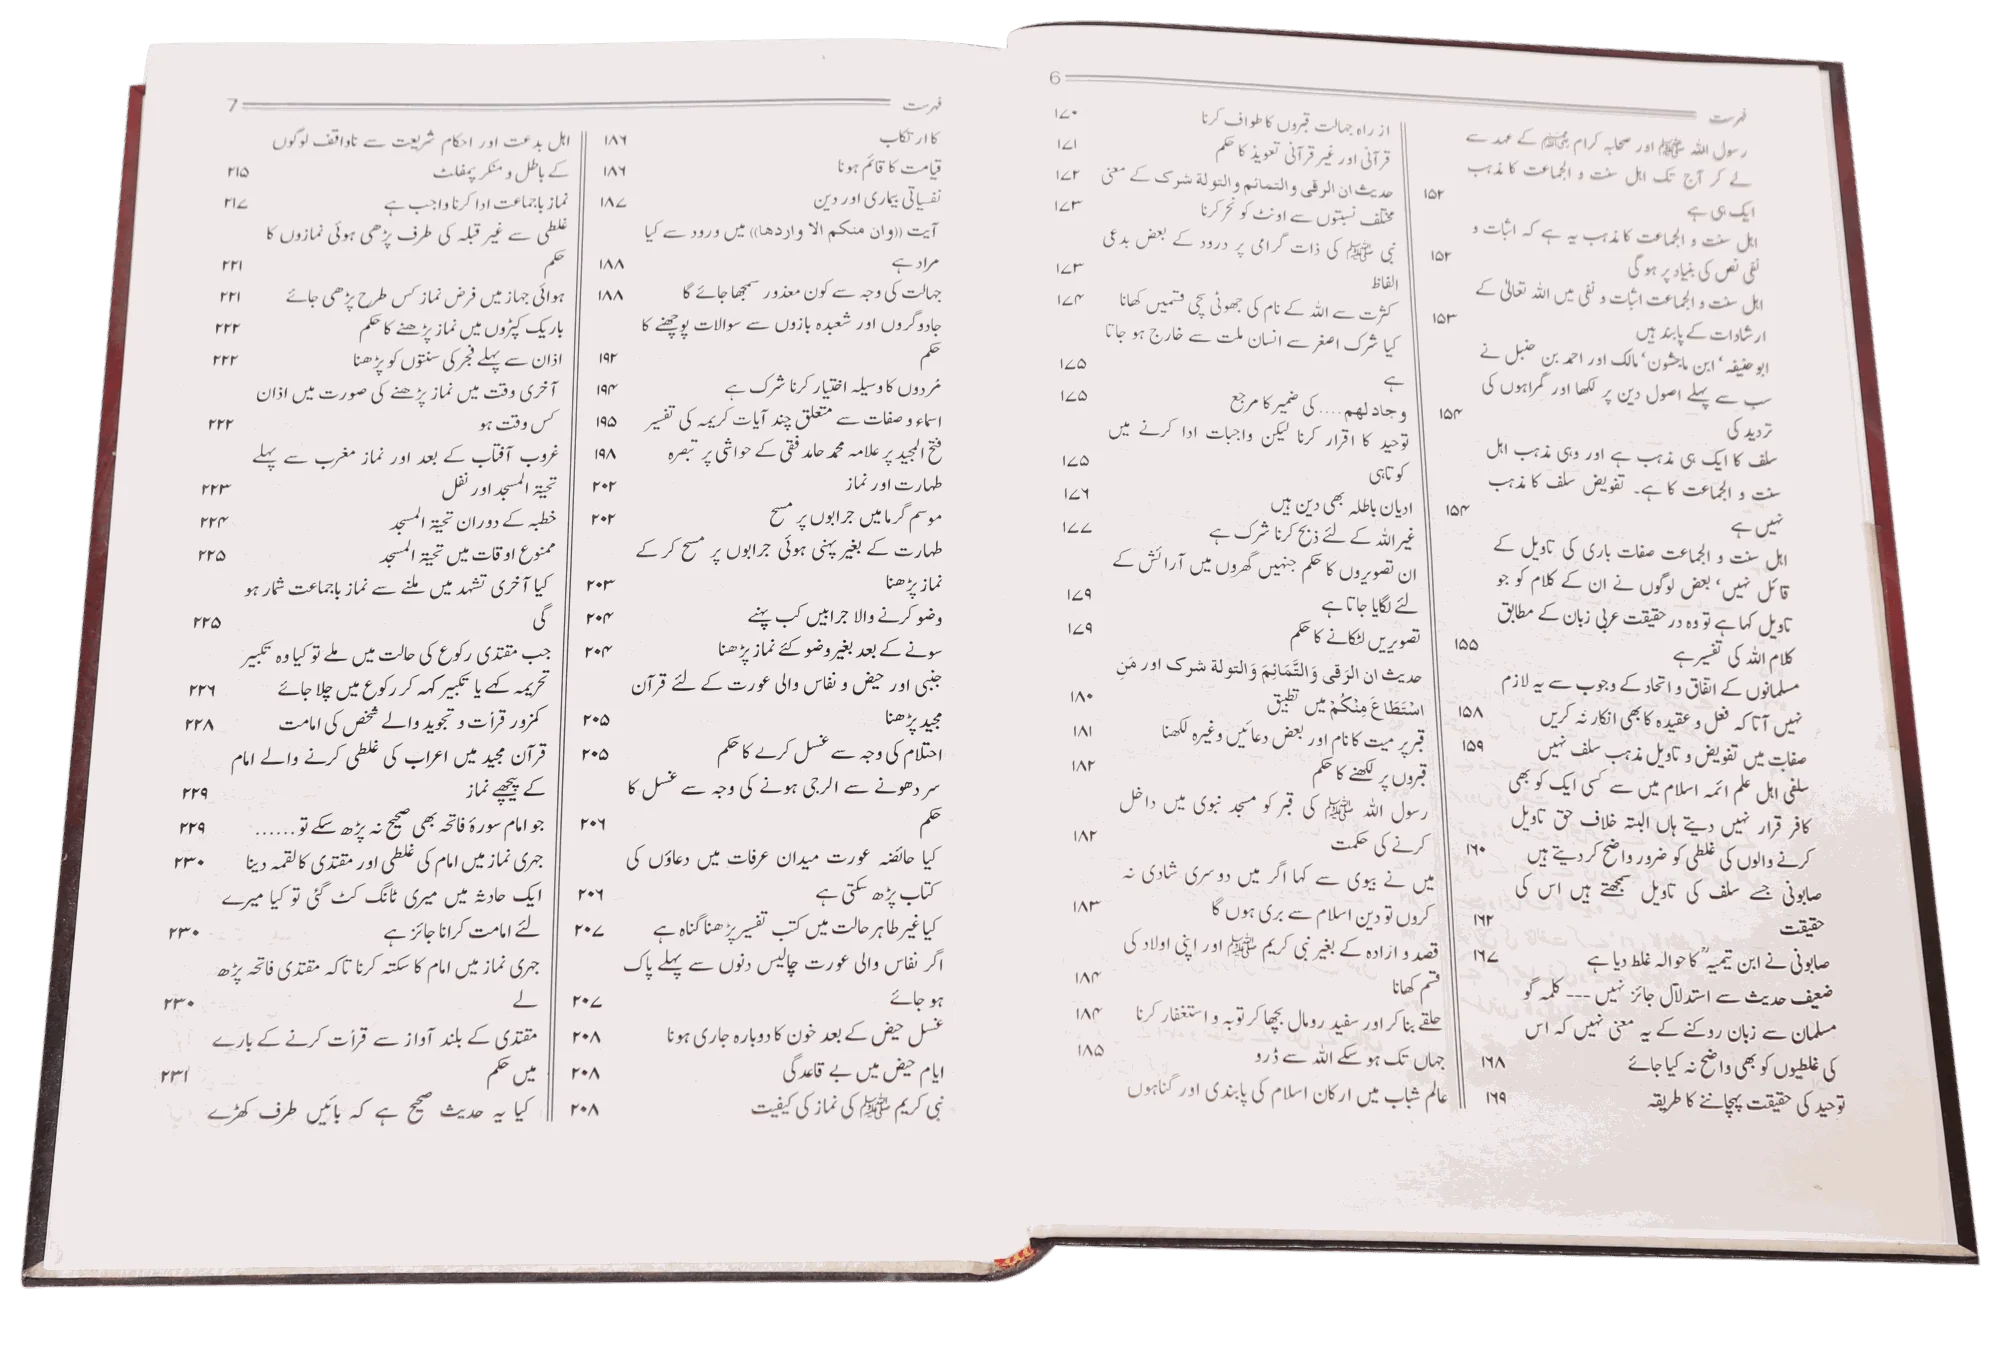 6
فہرست
رسول اللہ ﷺ اور صحابہ کرام ﷢ کے عہد سے
لے کر آج تک اہل سنت و الجماعت کا مذہب
ایک ہی ہے ۱۵۲
اہل سنت و الجماعت کا مذہب یہ ہے کہ اثبات و
نفی نص کی بنیاد پر ہو گی ۱۵۲
اہل سنت و الجماعت اثبات و نفی میں اللہ تعالیٰ کے
ارشادات کے پابند ہیں ۱۵۳
ابو حنیفہ‘ ابن ماجشون‘ مالک اور احمد بن حنبل نے
سب سے پہلے اصول دین پر لکھا اور گمراہوں کی
تردید کی ۱۵۴
سلف کا ایک ہی مذہب ہے اور وہی مذہب اہل
سنت و الجماعت کا ہے۔ تفویض سلف کا مذہب
نہیں ہے ۱۵۴
اہل سنت و الجماعت صفات باری کی تاویل کے
قائل نہیں‘ بعض لوگوں نے ان کے کلام کو جو
تاویل کہا ہے تو وہ در حقیقت عربی زبان کے مطابق
کلام اللہ کی تفسیر ہے ۱۵۵
مسلمانوں کے اتفاق و اتحاد کے وجوب سے یہ لازم
نہیں آتا کہ فعل و عقیدہ کا بھی انکار نہ کریں ۱۵۸
صفات میں تفویض و تاویل مذہب سلف نہیں ۱۵۹
سلفی اہل علم ائمہ اسلام میں سے کسی ایک کو بھی
کافر قرار نہیں دیتے ہاں البتہ خلاف حق تاویل
کرنے والوں کی غلطی کو ضرور واضح کر دیتے ہیں ۱۶۰
صابونی جسے سلف کی تاویل سمجھتے ہیں اس کی
حقیقت ۱۶۲
صابونی نے ابن تیمیہؒ کا حوالہ غلط دیا ہے ۱۶۷
ضعیف حدیث سے استدلال جائز نہیں --- کلمہ گو
مسلمان سے زبان روکنے کے یہ معنی نہیں کہ اس
کی غلطیوں کو بھی واضح نہ کیا جائے ۱۶۸
توحید کی حقیقت پہچاننے کا طریقہ ۱۶۹
از راہ جہالت قبروں کا طواف کرنا ۱۷۰
قرآنی اور غیر قرآنی تعویذ کا حکم ۱۷۱
حدیث ان الرقی والتمائم والتولة شرک کے معنی ۱۷۲
مختلف نسبتوں سے اونٹ کو نحر کرنا ۱۷۳
نبی ﷺ کی ذات گرامی پر درود کے بعض بدعی
الفاظ ۱۷۳
کثرت سے اللہ کے نام کی جھوٹی سچی قسمیں کھانا ۱۷۴
کیا شرک اصغر سے انسان ملت سے خارج ہو جاتا
ہے ۱۷۵
وجادلهم .... کی ضمیر کا مرجع ۱۷۵
توحید کا اقرار کرنا لیکن واجبات ادا کرنے میں
کوتاہی ۱۷۵
ادیان باطلہ بھی دین ہیں ۱۷۶
غیر اللہ کے لئے ذبح کرنا شرک ہے ۱۷۷
ان تصویروں کا حکم جنہیں گھروں میں آرائش کے
لئے لگایا جاتا ہے ۱۷۹
تصویریں لٹکانے کا حکم ۱۷۹
حدیث ان الرَقی وَالتَّمَائِمَ وَالتولة شرک اور مَنِ
اسْتَطَاعَ مِنْکُمْ میں تطبیق ۱۸۰
قبر پر میت کا نام اور بعض دعائیں وغیرہ لکھنا ۱۸۱
قبروں پر لکھنے کا حکم ۱۸۲
رسول اللہ ﷺ کی قبر کو مسجد نبوی میں داخل
کرنے کی حکمت ۱۸۲
میں نے بیوی سے کہا اگر میں دوسری شادی نہ
کروں تو دین اسلام سے بری ہوں گا ۱۸۳
قصد و ارادہ کے بغیر نبی کریم ﷺ اور اپنی اولاد کی
قسم کھانا ۱۸۴
حلقے بنا کر اور سفید رومال بچھا کر توبہ و استغفار کرنا ۱۸۴
جہاں تک ہو سکے اللہ سے ڈرو ۱۸۵
عالم شباب میں ارکان اسلام کی پابندی اور گناہوں
7
فہرست
کا ارتکاب ۱۸۶
قیامت کا قائم ہونا ۱۸۶
نفسیاتی بیماری اور دین ۱۸۷
آیت ((وان منکم الا واردها)) میں ورود سے کیا
مراد ہے ۱۸۸
جہالت کی وجہ سے کون معذور سمجھا جائے گا ۱۸۸
جادوگروں اور شعبدہ بازوں سے سوالات پوچھنے کا
حکم ۱۹۲
مُردوں کا وسیلہ اختیار کرنا شرک ہے ۱۹۴
اسماء و صفات سے متعلق چند آیات کریمہ کی تفسیر ۱۹۵
فتح المجید پر علامہ محمد حامد فقی کے حواشی پر تبصرہ ۱۹۸
طہارت اور نماز ۲۰۲
موسم گرما میں جرابوں پر مسح ۲۰۲
طہارت کے بغیر پہنی ہوئی جرابوں پر مسح کر کے
نماز پڑھنا ۲۰۳
وضو کرنے والا جرابیں کب پہنے ۲۰۴
سونے کے بعد بغیر وضو کئے نماز پڑھنا ۲۰۴
جنبی اور حیض و نفاس والی عورت کے لئے قرآن
مجید پڑھنا ۲۰۵
احتلام کی وجہ سے غسل کرے کا حکم ۲۰۵
سر دھونے سے الرجی ہونے کی وجہ سے غسل کا
حکم ۲۰۶
کیا حائضہ عورت میدان عرفات میں دعاؤں کی
کتاب پڑھ سکتی ہے ۲۰۶
کیا غیر طاہر حالت میں کتب تفسیر پڑھنا گناہ ہے ۲۰۷
اگر نفاس والی عورت چالیس دنوں سے پہلے پاک
ہو جائے ۲۰۷
غسل حیض کے بعد خون کا دوبارہ جاری ہونا ۲۰۸
ایام حیض میں بے قاعدگی ۲۰۸
نبی کریم ﷺ کی نماز کی کیفیت ۲۰۸
اہل بدعت اور احکام شریعت سے ناواقف لوگوں
کے باطل و منکر پمفلٹ ۲۱۵
نماز باجماعت ادا کرنا واجب ہے ۲۱۷
غلطی سے غیر قبلہ کی طرف پڑھی ہوئی نمازوں کا
حکم ۲۲۱
ہوائی جہاز میں فرض نماز کس طرح پڑھی جائے ۲۲۱
باریک کپڑوں میں نماز پڑھنے کا حکم ۲۲۲
اذان سے پہلے فجر کی سنتوں کو پڑھنا ۲۲۲
آخری وقت میں نماز پڑھنے کی صورت میں اذان
کس وقت ہو ۲۲۲
غروب آفتاب کے بعد اور نماز مغرب سے پہلے
تحیۃ المسجد اور نفل ۲۲۳
خطبہ کے دوران تحیۃ المسجد ۲۲۴
ممنوع اوقات میں تحیۃ المسجد ۲۲۵
کیا آخری تشہد میں ملنے سے نماز باجماعت شمار ہو
گی ۲۲۵
جب مقتدی رکوع کی حالت میں ملے تو کیا وہ تکبیر
تحریمہ کہے یا تکبیر کہہ کر رکوع میں چلا جائے ۲۲۶
کمزور قرأت و تجوید والے شخص کی امامت ۲۲۸
قرآن مجید میں اعراب کی غلطی کرنے والے امام
کے پیچھے نماز ۲۲۹
جو امام سورۂ فاتحہ بھی صحیح نہ پڑھ سکے تو ...... ۲۲۹
جہری نماز میں امام کی غلطی اور مقتدی کا لقمہ دینا ۲۳۰
ایک حادثہ میں میری ٹانگ کٹ گئی تو کیا میرے
لئے امامت کرانا جائز ہے ۲۳۰
جہری نماز میں امام کا سکتہ کرنا تاکہ مقتدی فاتحہ پڑھ
لے ۲۳۰
مقتدی کے بلند آواز سے قرأت کرنے کے بارے
میں حکم ۲۳۱
کیا یہ حدیث صحیح ہے کہ بائیں طرف کھڑے